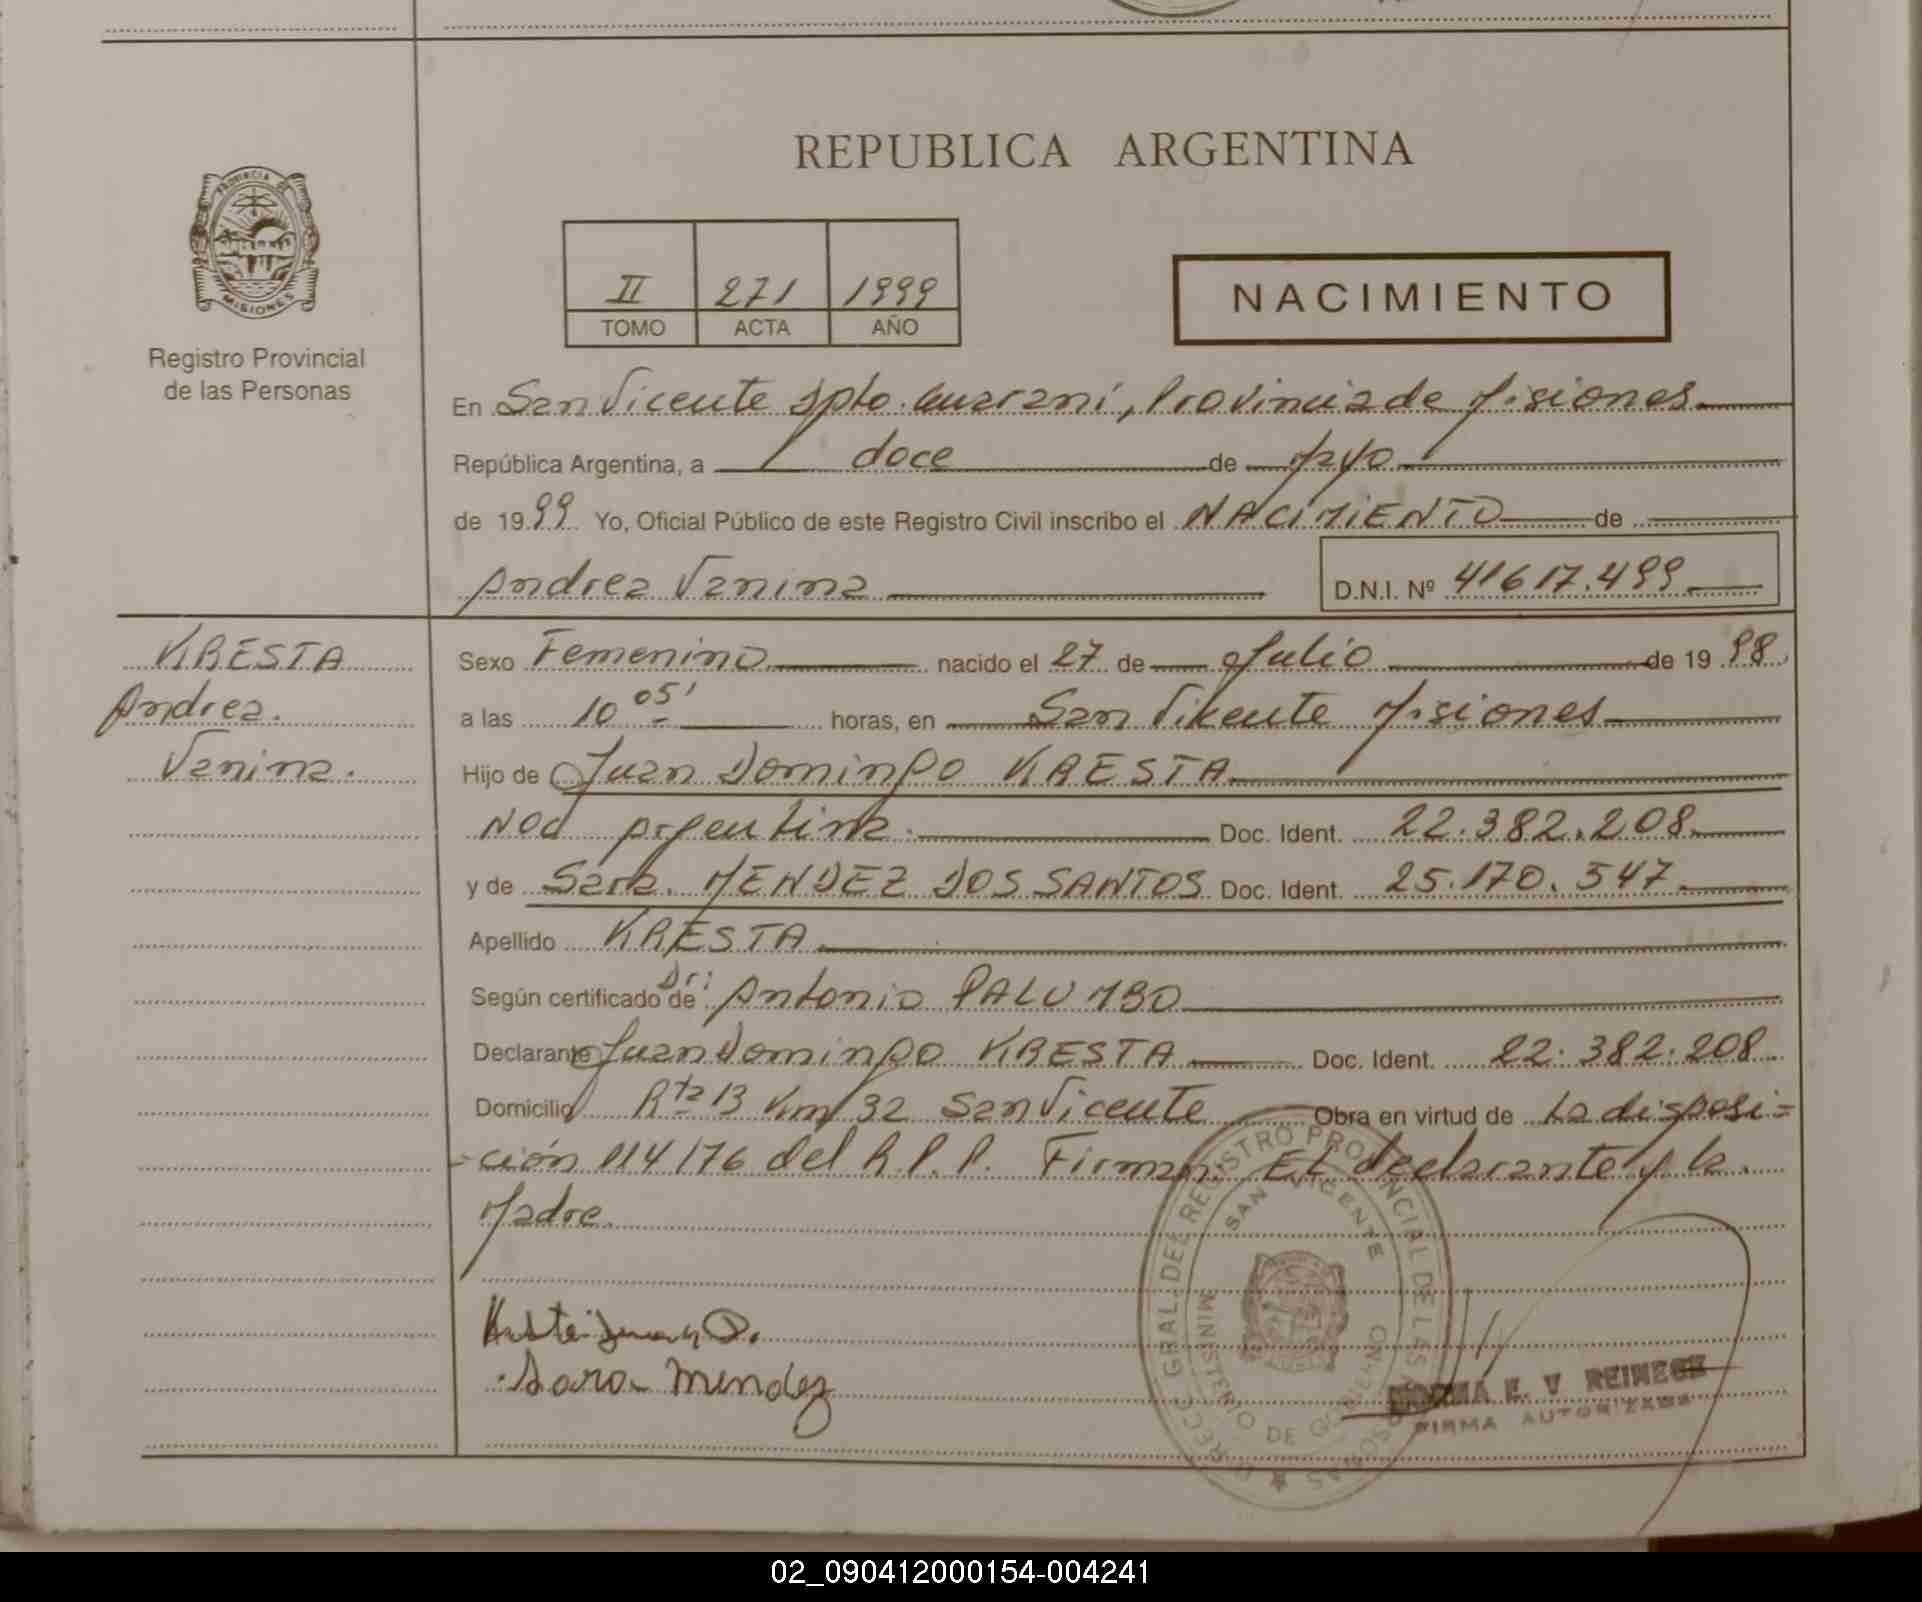 REPUBLICA ARGENTINA
PROVINCIA DE
MISIONES
Registro Provincial
de las Personas
II 271 1999
TOMO ACTA AÑO
NACIMIENTO
En San Vicente Dpto. Guaraní, Provincia de Misiones
República Argentina, a doce de Mayo
de 1999 Yo, Oficial Público de este Registro Civil inscribo el NACIMIENTO de
Andrea Vanina D.N.I. Nº 41617.499
KRESTA
Andrea
Vanina.
Sexo Femenino nacido el 27 de Julio de 1998
a las 10 05' horas, en San Vicente Misiones
Hijo de Juan Domingo KRESTA
Nac Argentina. Doc. Ident. 22.382.208
y de Sara. MENDEZ DOS SANTOS Doc. Ident. 25.170.547
Apellido KRESTA
Según certificado de Dr: Antonio PALUMBO
Declarante Juan Domingo KRESTA Doc. Ident. 22.382.208
Domicilio Rta 13 Km 32 San Vicente Obra en virtud de La disposi=
=ción 114/76 del R.P.P. Firman: El declarante y la
Madre.
Juan D.
Sara Mendez
DIRECC. GRAL. DEL REGISTRO PROVINCIAL DE LAS PERSONAS
SAN VICENTE
MINISTERIO DE GOBIERNO
NORMA E. V REINECK
FIRMA AUTORIZADA
02_090412000154-004241